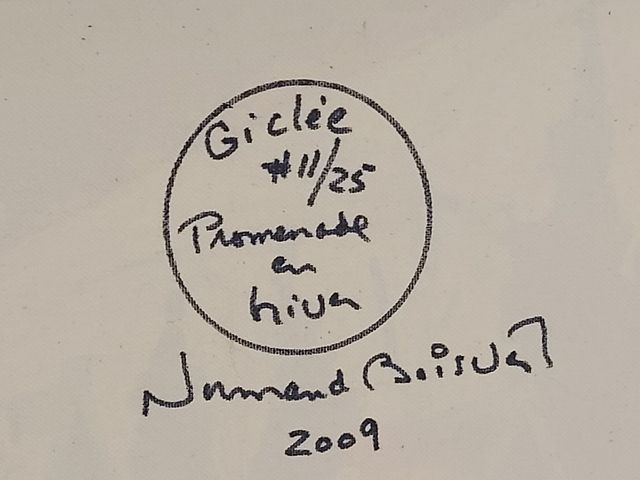 Giclée
#11/25
Promenade
en
hiver
Normand Boisvert
2009